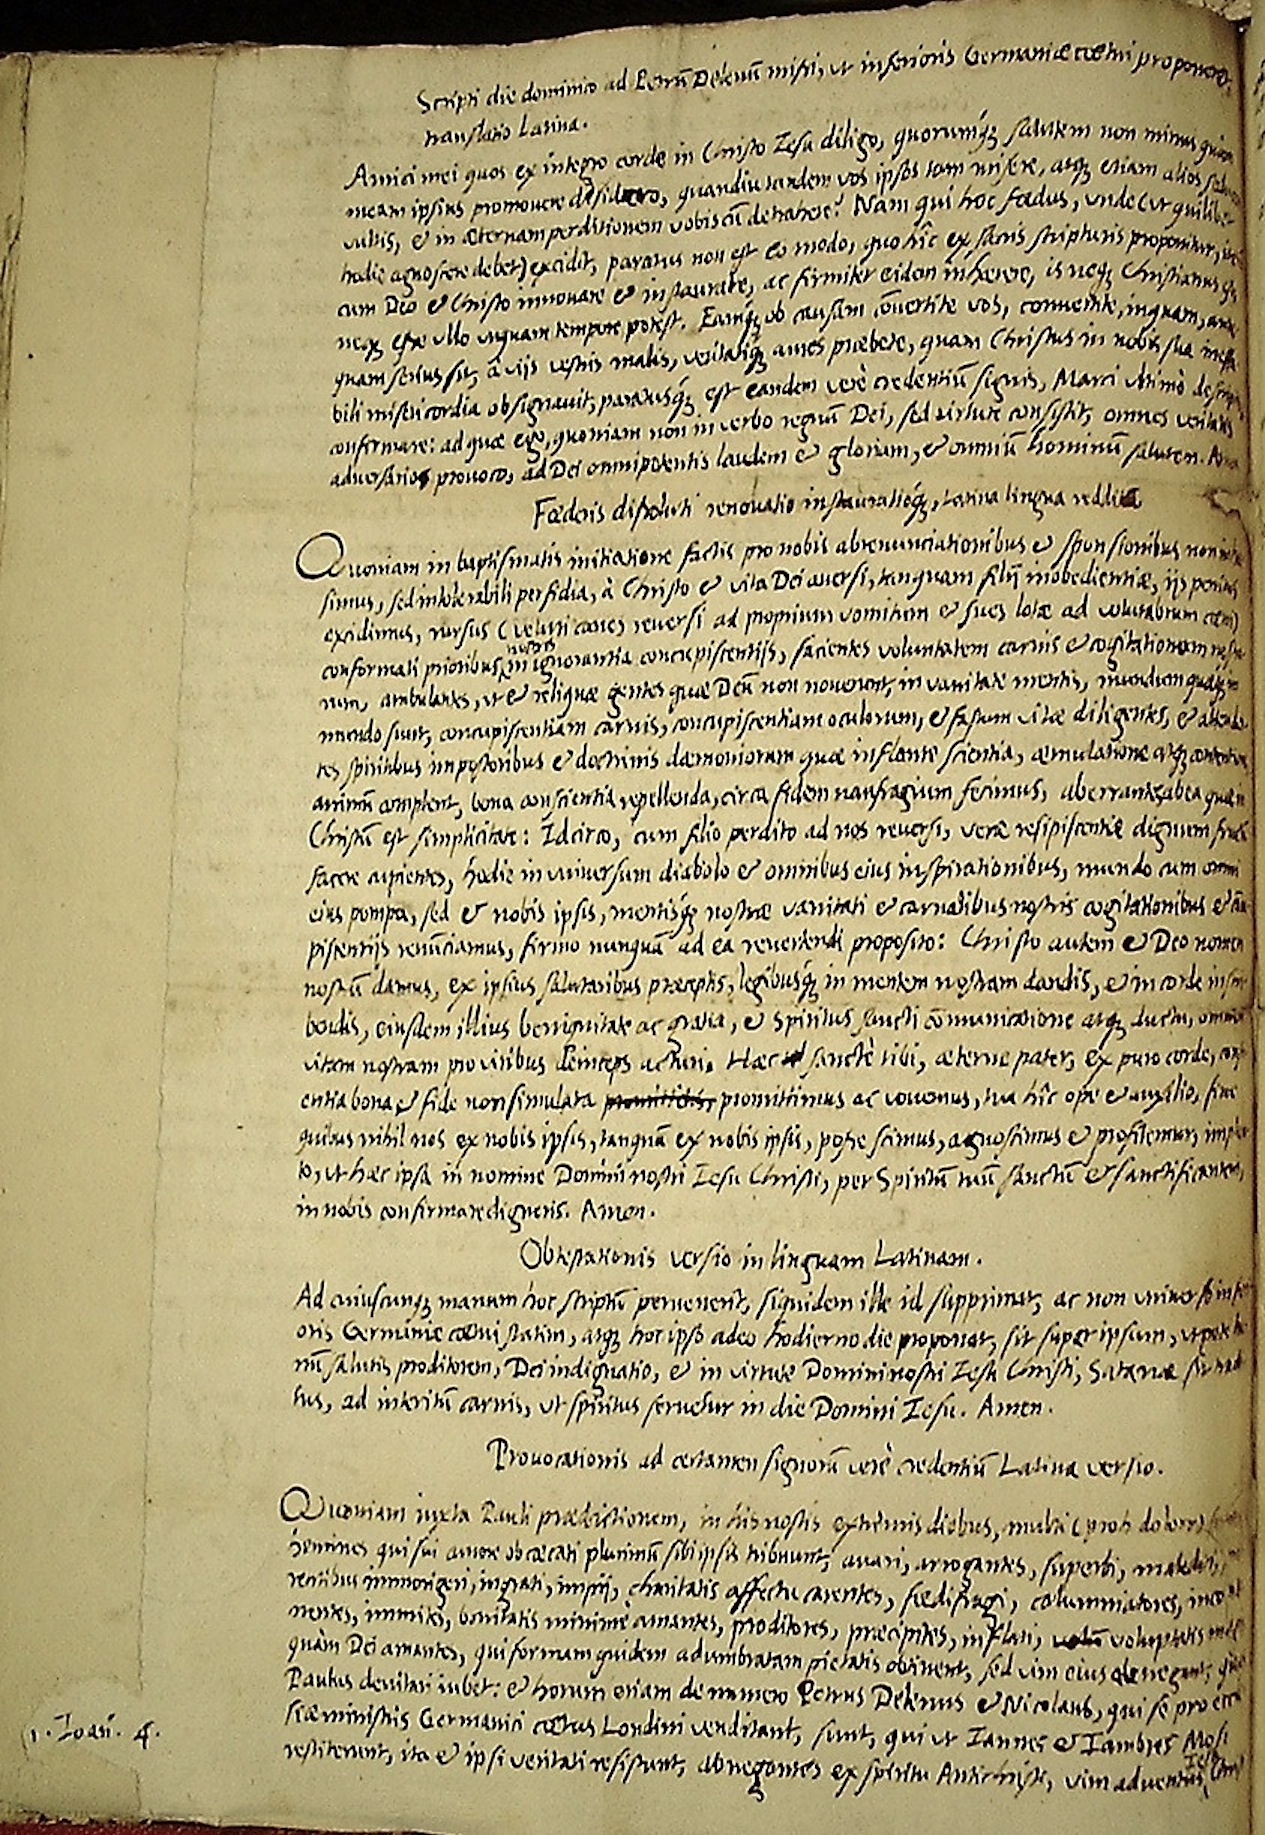 Scripti die dominico ad Petrū Delenū missi, ut inferioris Germaniæ cœtui proponeret,
translatio Latina.
Amici mei quos ex integro corde in Christo Iesu diligo, quorumq́ꝫ salutem non minus quàm
meam ipsius promouere desidero, quandiu tandem vos ipsos tam misere, atqꝫ etiam alios
vultis, & in æternam perditionem vobiscū detrahere? Nam qui hoc fœdus, unde (ut quilibet
hodie agnoscere debet) excidit, paratus non est eo modo, quo hîc ex sacris scripturis proponitur,
cum Deo & Christo innouare & instaurare, ac firmiter eidem inhærere, is neqꝫ Christianus est
neqꝫ esse ullo unquam tempore potest. Eamq́ꝫ ob causam cōuertite vos, conuertite, inquam,
quam serius sit, à vijs vestris malis, veritatiq́ꝫ aures præbete, quam Christus in nobis sua
bili misericordia obsignauit, paratusq́ꝫ est eandem verè credentiū signis, Marci ultimo
confirmare: ad quæ ego, quoniam non in verbo regnū Dei, sed virtute consistit, omnes veritatis
aduersarios prouoco, ad Dei omnipotentis laudem & gloriam, & omniū hominū salutem.
Fœderis dissoluti renouatio instauratioq́ꝫ, Latina lingua reddita
Quoniam in baptismatis initiatione factis pro nobis abrenunciationibus & sponsionibus non
simus, sed intolerabili perfidia, à Christo & vita Dei auersi, tanquam filij inobedientiæ, ijs penitus
excidimus, rursus (veluti canes reuersi ad proprium vomitum & sues lotæ ad volutabrum cœni)
conformati prioribus, in nostra ignorantia concupiscentijs, facientes voluntatem carnis & cogitationum
rum, ambulantes, ut & reliquæ gentes quæ Deū non nouerunt, in vanitate mentis, mundum
mundo sunt, concupiscentiam carnis, concupiscentiam oculorum, & fastum vitæ diligentes, &
tes spiritibus impostoribus & doctrinis dæmoniorum quæ inflante scientia, æmulatione atqꝫ
animū complent, bona conscientia repellenda, circa fidem naufragium fecimus, aberrantes ab ea quæ in
Christū est simplicitate: Idcirco, cum filio perdito ad nos reuersi, veræ resipiscentiæ dignum
facere cupientes, hodie in uniuersum diabolo & omnibus eius inspirationibus, mundo cum omni
eius pompa, sed & nobis ipsis, mentisq́ꝫ nostræ vanitati & carnalibus nostris cogitationibus &
piscentijs renūciamus, firmo nunquā ad ea reuertendi proposito: Christo autem & Deo nomen
nostrū damus, ex ipsius salutaribus præceptis, legibusq́ꝫ in mentem nostram dandis, & in corde
bendis, eiusdem illius benignitate ac gratia, & Spiritus sancti cōmunicatione atqꝫ ductu, omnem
vitam nostram pro viribus deinceps acturi. Hæc sanctè tibi, æterne pater, ex puro corde,
entia bona & fide non simulata promittimus ac vouemus, tua hîc ope & auxilio, sine
quibus nihil nos ex nobis ipsis, tanquā ex nobis ipsis, posse scimus, agnoscimus & profitemur,
to, ut hæc ipsa in nomine Domini nostri Iesu Christi, per Spiritū tuū sanctū & sanctificantem,
in nobis confirmare digneris. Amen.
Obtestationis versio in linguam Latinam.
Ad cuiuscunqꝫ manum hoc scriptū peruenerit, siquidem ille id supprimat, ac non uniuerso
oris Germaniæ cœtui statim, atqꝫ hoc ipso adeo hodierno die proponat, sit super ipsum, utpote
nū salutis proditorem, Dei indignatio, & in virtute Domini nostri Iesu Christi, Satanæ sit
tus, ad interitū carnis, ut spiritus seruetur in die Domini Iesu. Amen.
Prouocationis ad certamen signorū verè credentiū Latina versio.
Quoniam iuxta Pauli prædictionem, in his nostris extremis diebus, multi (proh dolor)
homines qui sui amore obcæcati plurimū sibi ipsis tribuunt, auari, arrogantes, superbi, maledici,
rentibus immorigeri, ingrati, impij, charitatis affectu carentes, fœdifragi, calumniatores,
nentes, immites, bonitatis minimè amantes, proditores, præcipites, inflati, voluptatis
quàm Dei amantes, qui formam quidem adumbratam pietatis obtinent, sed vim eius abnegant,
Paulus deuitari iubet: & horum etiam de numero Petrus Delenus & Nicolaus, qui se pro
siæ ministris Germanici cœtus Londini venditant, sunt, qui ut Iannes & Iambres Mosi
restiterunt, ita & ipsi veritati resistunt, abnegantes ex spiritu Antichristi, vim aduentus Iesu
1. Ioan. 4.